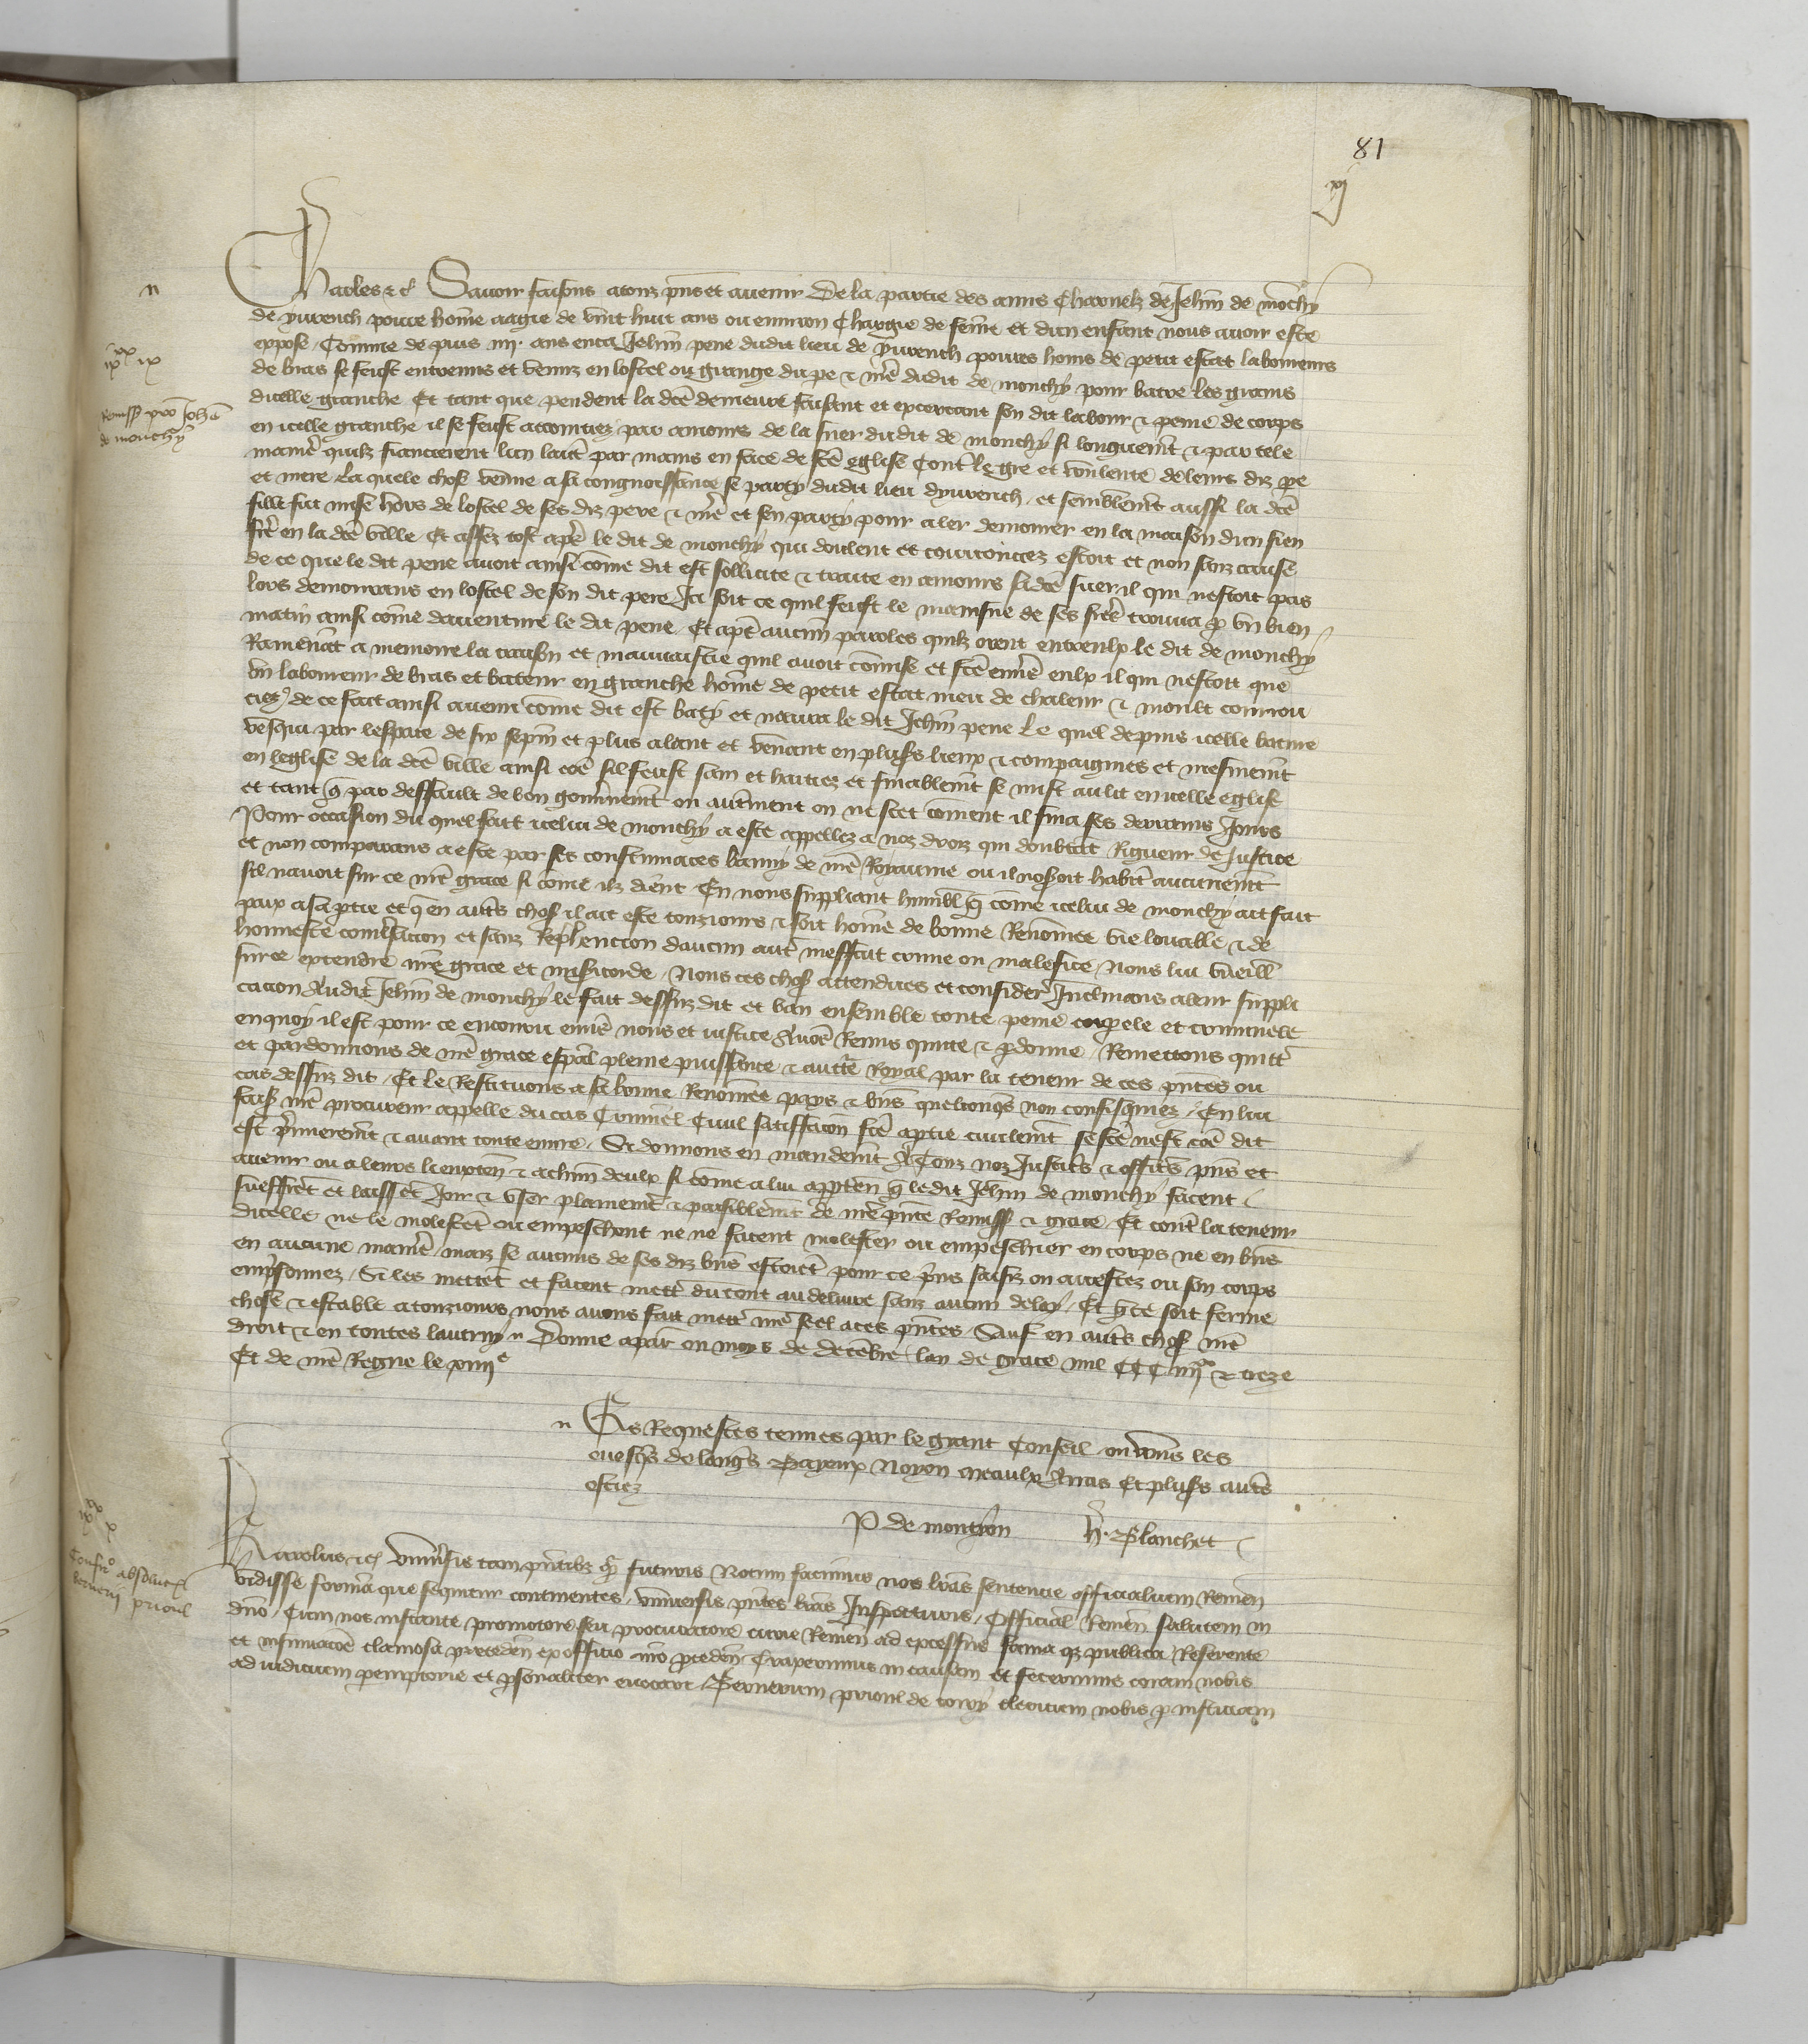 81
xj
n
Charles etc Savoir faisons a touz pns et avenir De la partie des amis Charnelz de Jehan de monchy
de yuvrench povre home aagie de vint huit ans ou environ Chargie de feme et dun enfant nous avoir este
expose Comme de puis iiij ans enca Jehan pene dudit lieu de yuvrench povres homs de petit estat laboureurs
ix xx ix
de bras se feust entremis et venuz en lostel ou grange du pe et me dudit de monchy pour batre les grains
Remiss pro Johe de monchy
dicelle granche Et tant que pendent la dce demeure faisant et excercant son dit labour et peine de corps
en icelle granche il se feust acointiez par amours de la suer dudit de monchy si longuemt et par tele
mame quilz fiancerent lun laut par mains en face de sce eglise Contre le gre et voulente de leurs diz pe
et mere La quele chose venue a sa congnoissance se party dudit lieu dyuvrench et semblemt aussi la dce
fille fut mise hors de lostel de ses diz pere et me et sen party pour aler demourer en la maison dun sien
fre en la dce ville Et assez tost apre le dit de monchy qui doulent et courrouciez estoit et non sanz cause
de ce que le dit pene avoit ainsi come dit est sollicite et traite en amours sa dce suer il qui nestoit pas
lors demourans en lostel de son dit pere Ja soit ce quil feust le mainsne de ses fre trouva p un bien
matin ainsi come daventure le dit pene Et apre aucun paroles quilz orent entreulx le dit de monchy
Ramenat a memoire la traison et mauvaistie quil avoit comise et fce envre eulx il qui nestoit que
un laboureur de bras et bateur en granche home de petit estat meu de chaleur et moult courrou
ciez de ce fait ainsi avenu come dit est baty et navra le dit Jehan pene Le quel depuis icelle bature
vesqui par lespace de six sepm et plus alant et venant en plusrs lieux et compaignies et mesmemt
en leglise de la dce ville ainsi coe sil feust sain et haitiez et finablemt se mist au lit en icelle eglise
et tant q par deffault de bon gouvnemt ou autment on ne scet coment il fina ses derreniers Jours
Pour occasion du quel fait icelui de monchy a este appellez a noz droiz qui doubtat Rigueur de Justice
et non comparans a este par ses contumaces banny de nre Royaume ou il noseroit habit aucunemt
sil navoit sur ce nre grace si come ilz dient En nous suppliant humbl q come icelui de monchy ait fait
paix a sa ptie et q en auts chos il ait este touzjours et soit home de bonne Renomee vie louable et de
honneste conversacion et sanz Reprhencion daucun aut meffait crime ou malefice Nous lui vueill
sur ce extendre nre grace et misicorde Nous ces chos attendues et consider Inclinans a leur suppli
cacion Audit Jehan de monchy le fait dessuz dit et ban ensemble toute peine corporele et criminele
en quoy il est pour ce encouru envre nous et justice Avos Remis quitte et pdonne Remettons quitt
et pardonnons de nre grace espal pleine puissance et aucte Royal par la teneur de ces pntes ou
cas dessuz dit Et le Restituons a sa bonne Renomee pays et bns quelconqs non confisquiez En lui
fais nre procureur appelle du cas Criminel Civil satiffacion fce a ptie civilemt se fce nest coe dit
est primieremt et avant toute euvre Si donnons en mandemt A Touz noz Justics et offics pns et
avenir ou a leurs lieuxten et a chun deulx si come a lui apptien q ledit Jehan de monchy facent
sueffret et laisset Joir et user plainemt et paisiblemt de nre pnte Remiss et grace Et cont la teneur
dicelle ne le molestet ou empeschent ne ne facent molester ou empeschier en corps ne en bns
en aucune mame maiz se aucuns de ses diz bns estoiet pour ce pris saisiz ou arrestez ou son corps
emprisonnez Si les mettet et facent mett du tout au delivre sanz aucun delay Et q ce soit ferme
chose et estable a touzjours nous avons fait mett nre seel a ces pntes Sauf en auts chos nre
droit et en toutes lautruy Donne a par ou moys de decembre lan de grace mil CCC iiijxx et treze
Et de nre Regne le xiiije
n Es Requestes tenues par le grant Conseil ou vous les
evesqs de langrs Bayeux Noyon Meaulx Arras Et plusrs auts
estiez
P de monthyon   H. Blanchet
ix xx x
Confirmo absolucois Berneri priorel
Karolus etc Univsis tam pntibz q futuris Notum facimus nos lras sentencie officialium Remen
vidisse formam que sequitur continentes Universis pntes lras Inspecturis Official Remen salutem in
dno Cum nos instante promotore seu procuratore curie Remen ad excessus fama qz publica Referente
et insinuacoe clamosa preceden ex officio nro proceden Traxerimus in causam et fecerimus coram nobis
ad iudicium pemptorie et psonaliter evocari Bernerum priorel de torcy clericum nobis p iusticiam